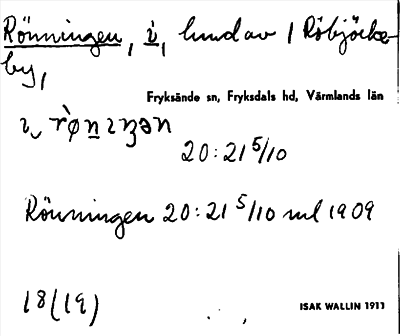 Rönningen, i, hund av / Röbjörke-
by,
Fryksände sn, Fryksdals hd, Värmlands län
20:21 5/10
Rönningen 20:21 5/10 ml 1909
18(19)
ISAK WALLIN 1911